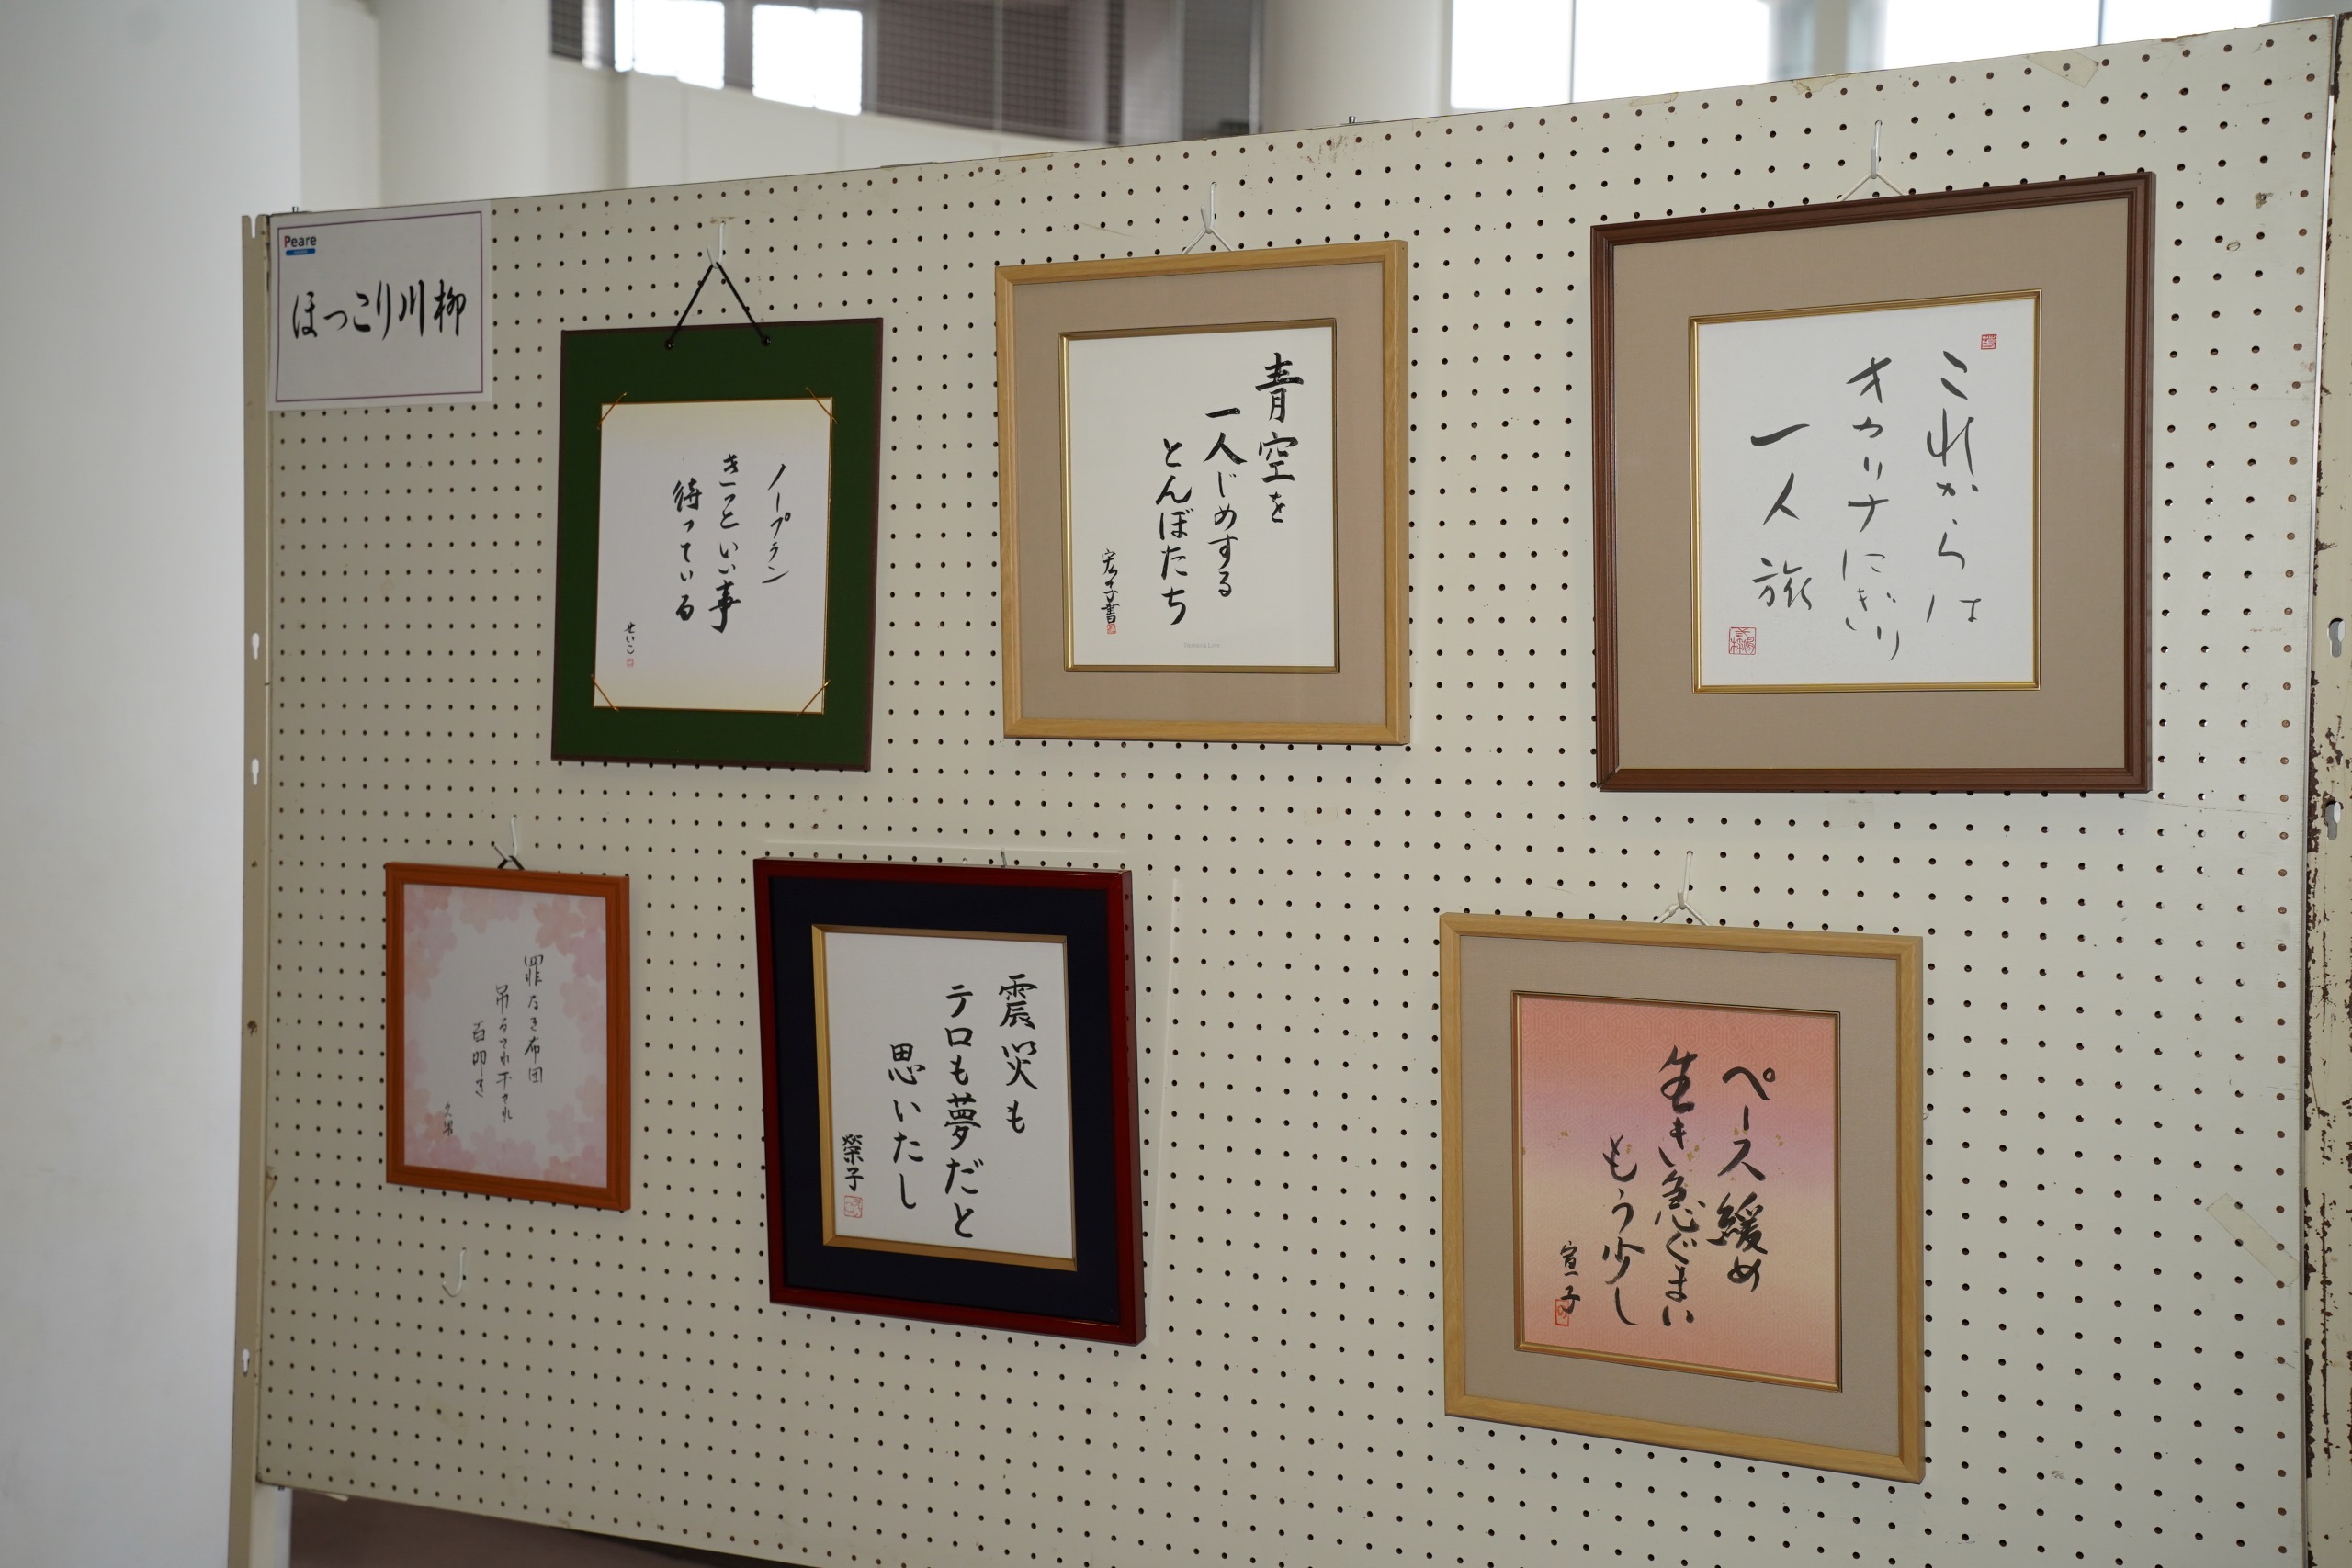 Peare
ほっこり川柳
ノープラン
きっといい事
待っている
せいこ
青空を
一人じめする
とんぼたち
宏子書
これからは
オカリナにぎり
一人旅
罪なき布団
吊るされ干され
百叩き
震災も
テロも夢だと
思いたし
榮子
ペース緩め
生き急ぐまい
もう少し
宣子